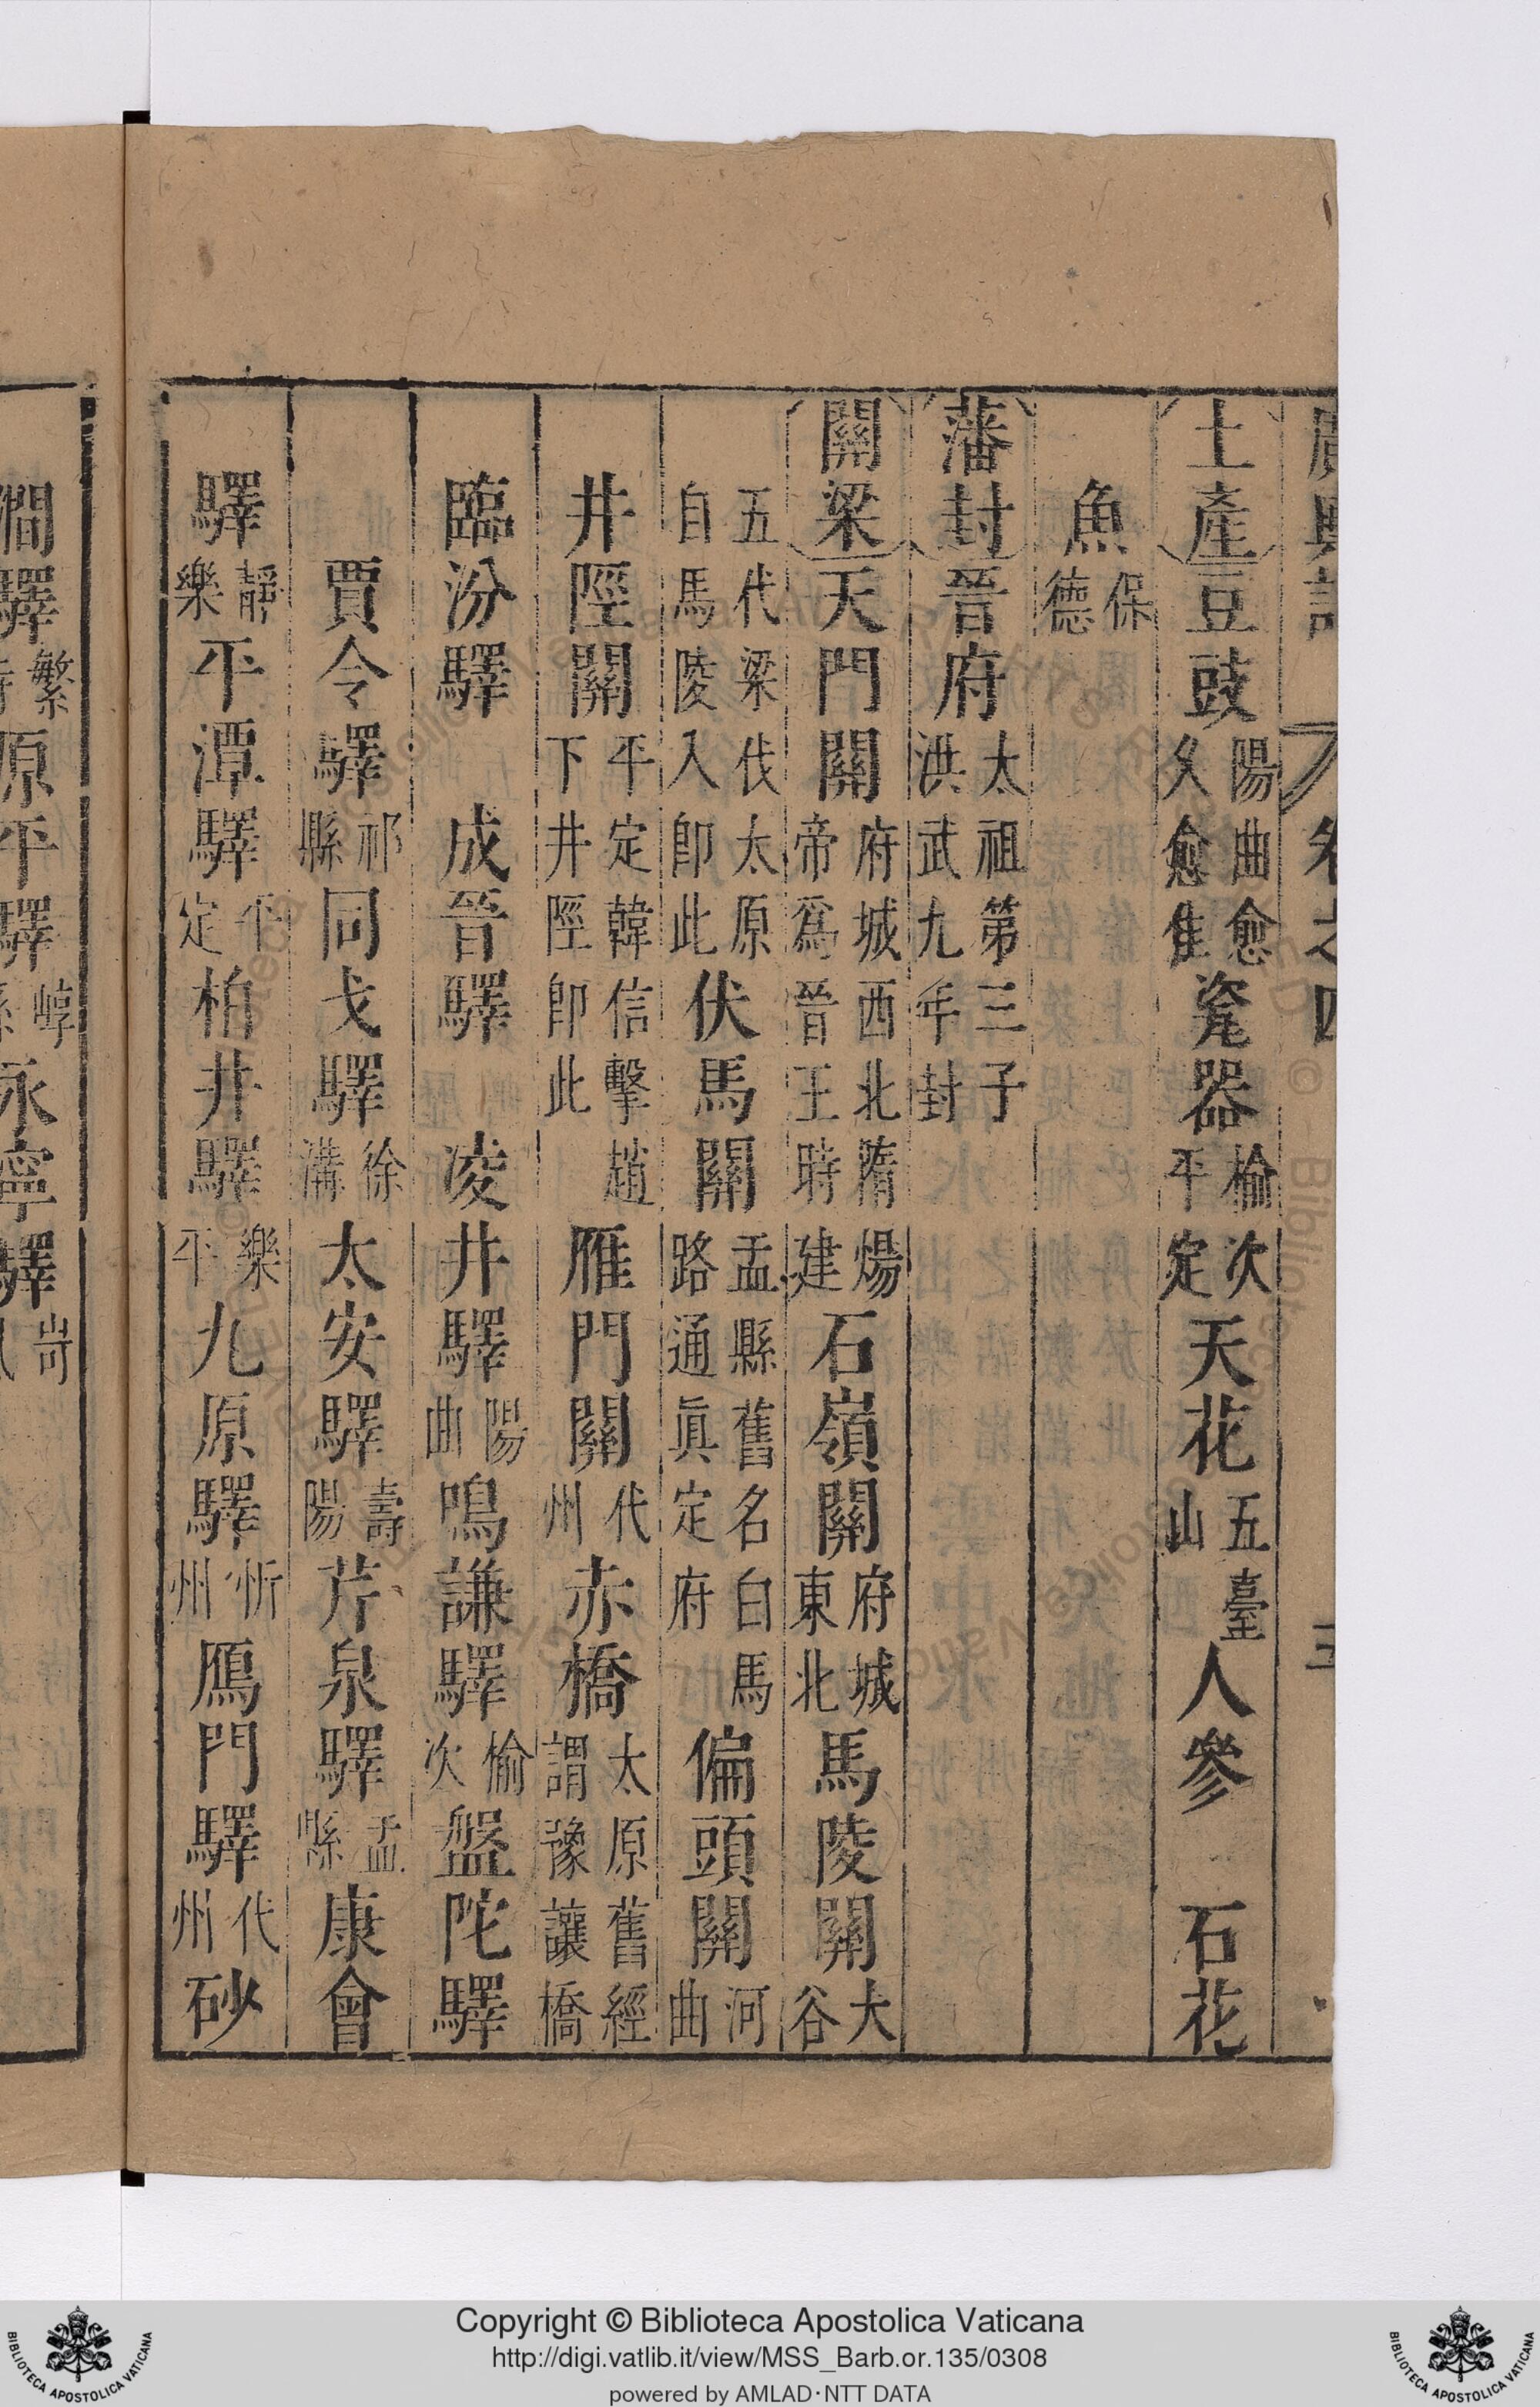 廣輿記 卷之四
土產豆豉陽曲愈久愈佳瓷器榆次平定天花五臺山人參 石花
魚保德
藩封晉府太祖第三子洪武九年封
關梁天門關府城西北隋煬帝爲晉王時建石嶺關府城東北馬陵關大谷
五代梁伐太原自馬陵入卽此伏馬關孟縣舊名白馬路通眞定府偏頭關河曲
井陘關平定韓信擊趙下井陘卽此雁門關代州赤橋太原舊經謂豫讓橋
臨汾驛 成晉驛 凌井驛陽曲鳴謙驛榆次盤陀驛
賈令驛祁縣同戈驛徐溝太安驛壽陽芹泉驛孟縣康會
驛靜樂平潭驛平定柏井驛樂平九原驛忻州鴈門驛代州砂
澗驛繁峙原平驛崞縣永寧驛岢
Copyright © Biblioteca Apostolica Vaticana
http://digi.vatlib.it/view/MSS_Barb.or.135/0308
powered by AMLAD·NTT DATA
BIBLIOTECA APOSTOLICA VATICANA
BIBLIOTECA APOSTOLICA VATICANA